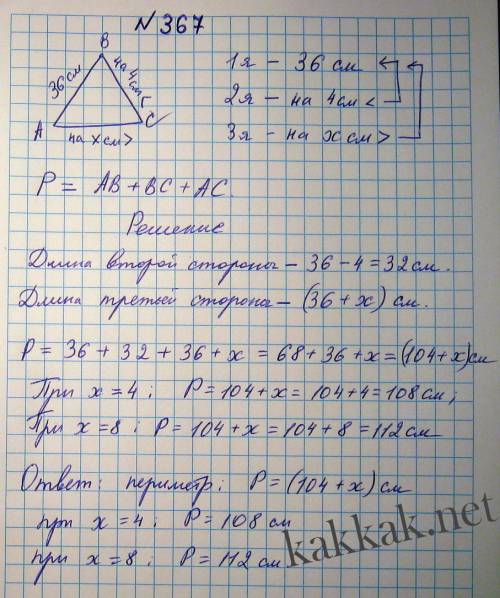 № 367
B
36 см
на 4 см <
A
C
на х см >
1я – 36 см
2я – на 4 см <
3я – на х см >
P = AB + BC + AC.
Решение
Длина второй стороны – 36 – 4 = 32 см.
Длина третьей стороны – (36 + х) см.
P = 36 + 32 + 36 + х = 68 + 36 + х = (104 + х) см
При х = 4 ; P = 104 + х = 104 + 4 = 108 см ;
При х = 8 ; P = 104 + х = 104 + 8 = 112 см
Ответ: периметр: P = (104 + х) см
при х = 4 ; P = 108 см
при х = 8 ; P = 112 см
kakkak.net